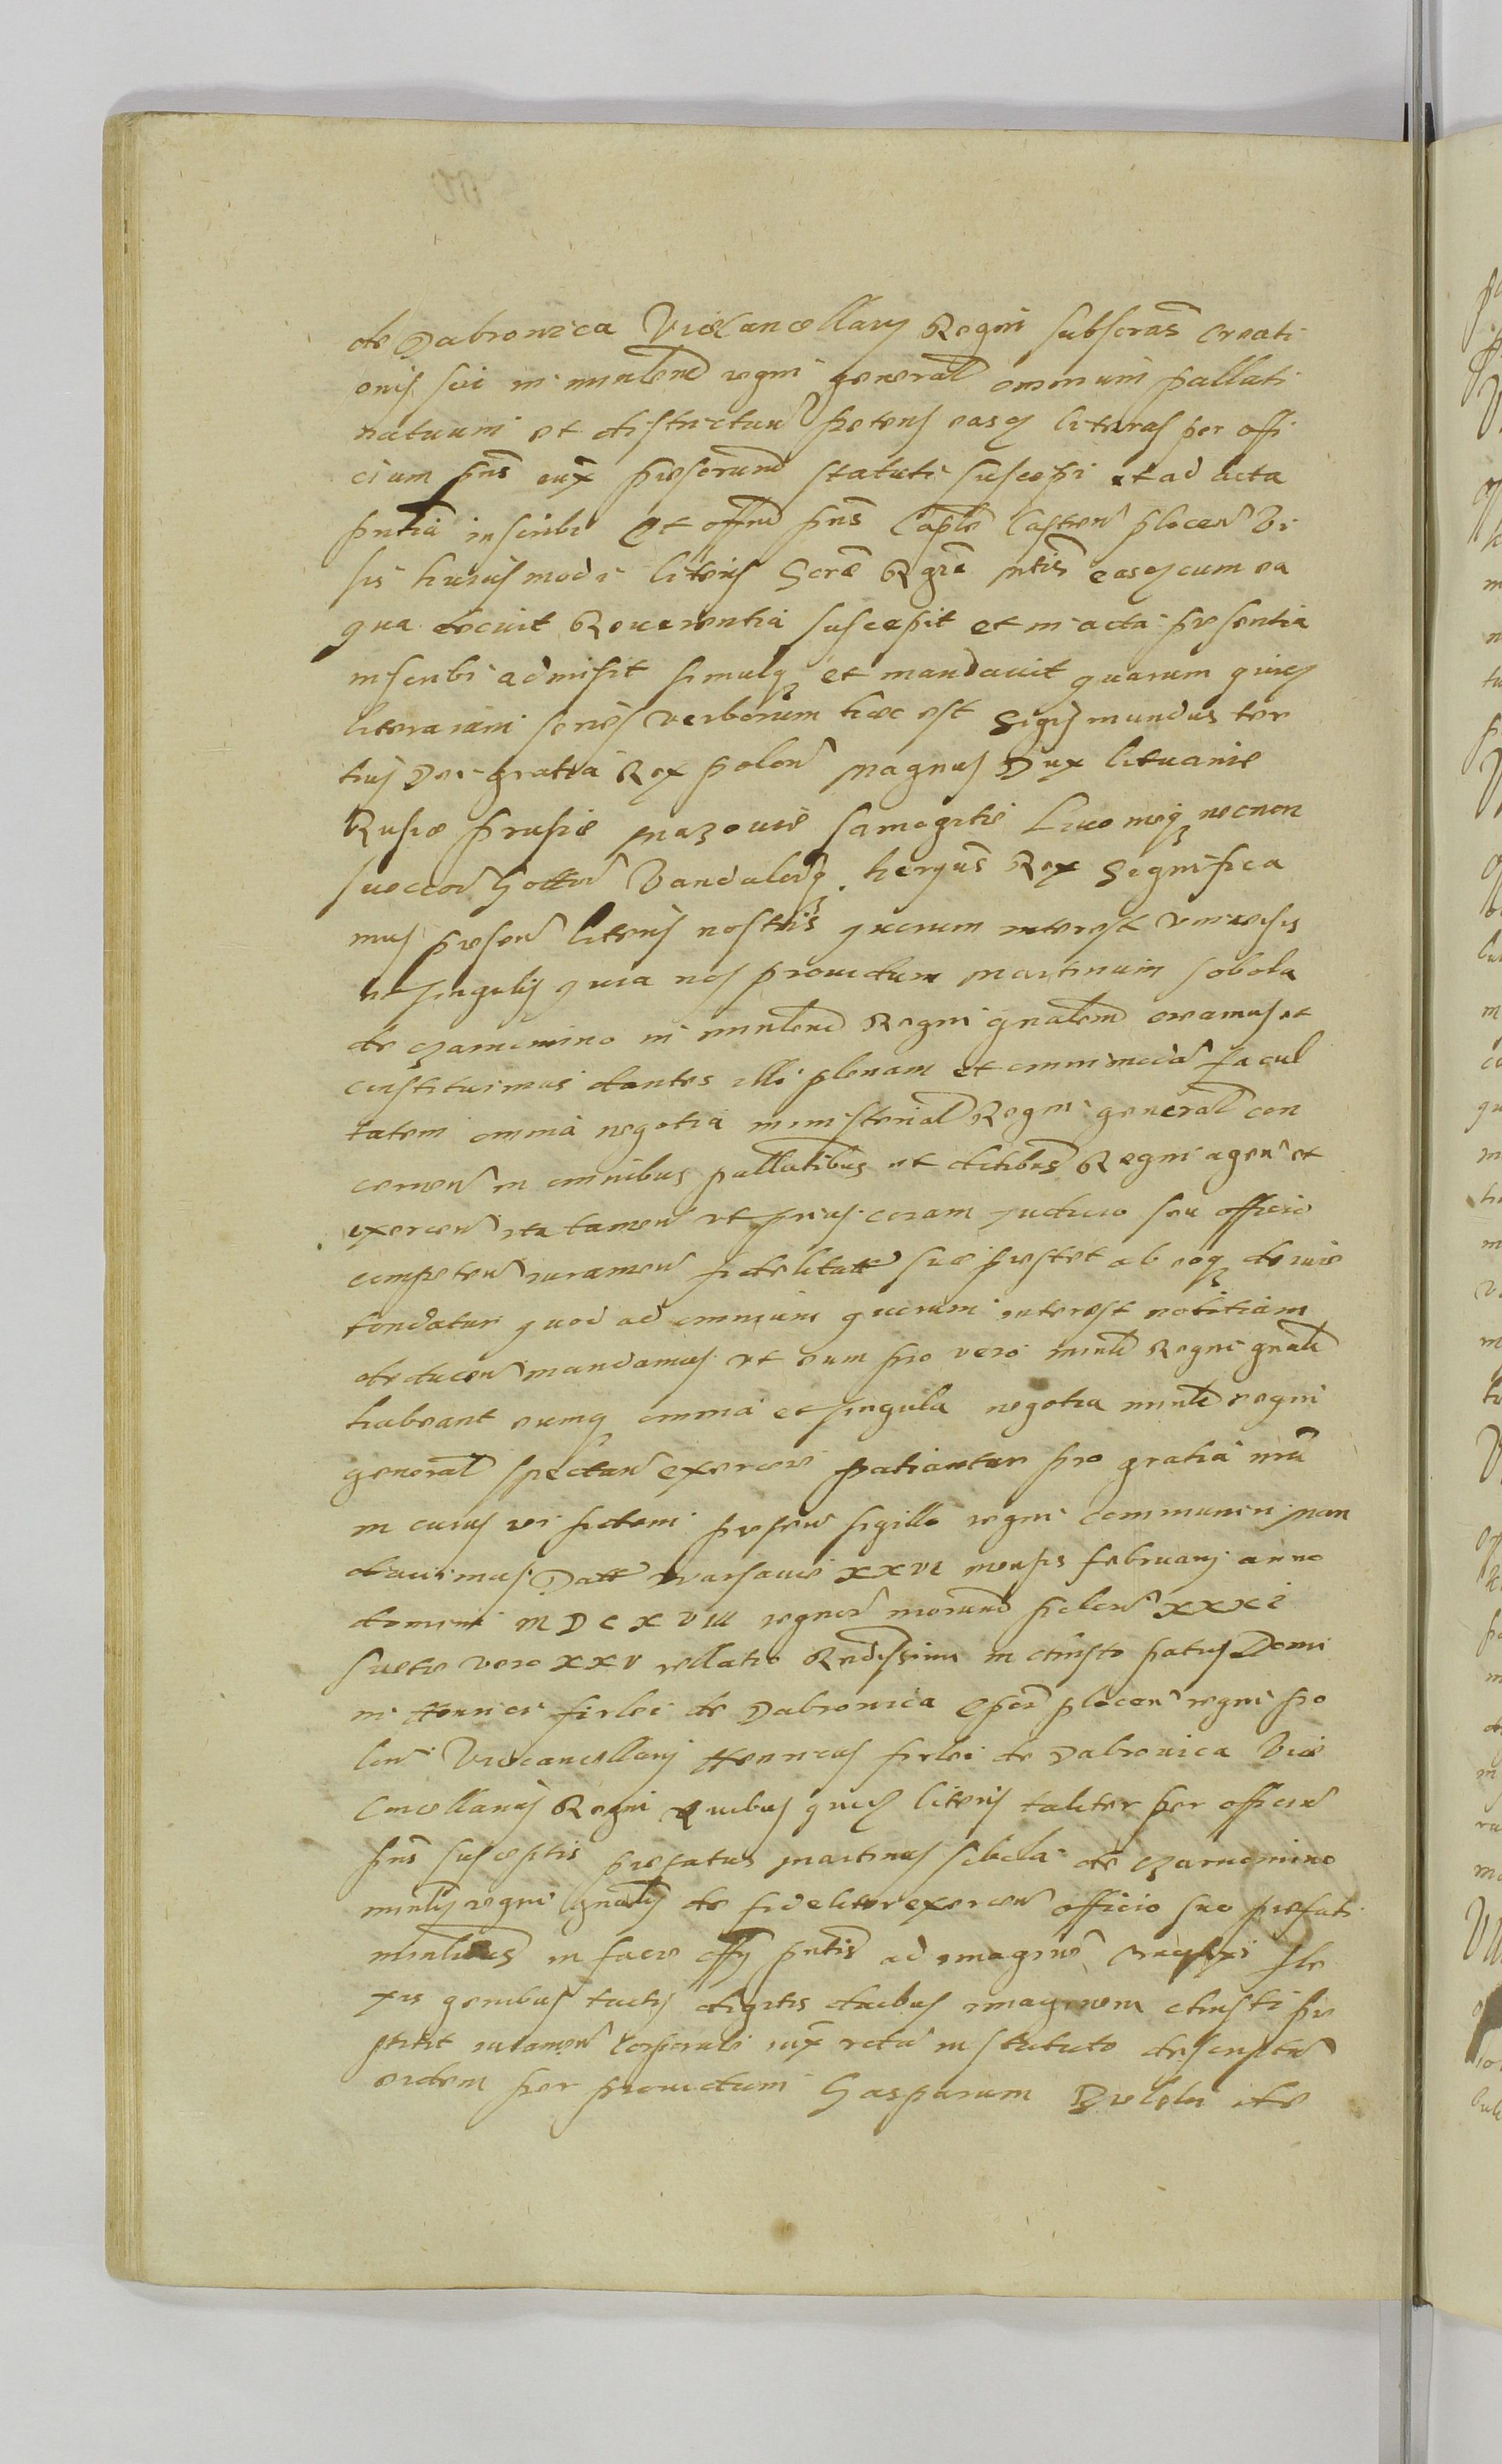 de Dabrowica Vicecancellarii Regni subscras creati
onis sui in minlem regni general omnium pallati
natuum et districtuum petens easq literas per offi
cium pns iux praescrund statuti suscepi et ad acta
pntia inscribi Et offm pns Caple Castren plocen Vi
sis huiusmodi literis Scre Rgie mtis easq cum ea
qua decuit Reuerentia suscepit et in acta presentia
inscribi admisit simulq et mandauit quarum quiq
literarum series verborum haec est Sigismundus ter
tius Dei gratia Rex polon magnus Dux lituanie
Rusie prusie mazouie samogitie Liuonieq necnon
sueccor Gottor Vandalorq heryus Rex Significa
mus presen literis nostris quorum interest vniuersis
et singulis quia nos prouidum martinum sobola
de czarnomino in minlem Regni gnalem creamus et
constituimus dantes illi plenam et omnimoda facul
tatem omnia negotia ministerial Regni general con
cernen in omnibus pallatibus et dictibus Regni agen et
exercen ita tamen vt prius coram judicio seu officio
competen iuramen fidelitatis sue prestet ab eoq de iure
tondatur quod ad omnium quorum interest notitiam
deducen mandamus vt eum pro vero minle Regni gnale
habeant eumq omnia et singula negotia minle regni
general spectan exercere patiantur pro gratia nra
in cuius rei fidem presen sigillo regni communiri man
dauimus Datt warsauie XXVI mensis februarij anno
domini MDCXVIII regnor nrorum polon XXXI
suetie vero XXV rellatio Rndissimi in christo patris Domi
ni Henrici firlei de Dabrowica Epi plocen regni po
lon Vicecancellarij Henricus firlei de Dabrowica Vice
Cancellarius Regni Quibus quiq literis taliter per officiu
pns susceptis prefatus martinus sobola de czarnomino
minlis regni gnalis de fideliter exercen officio suo prefati
minlibus in facie offy pntis ad imagine crucifixi fle
xis genibus tactis digitis duobus imaginem christi pre
stitit iuramen corporale iux rota in statuto descripta
eidem per prouidum Gasparum de